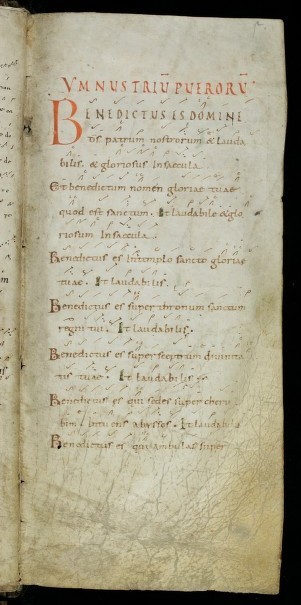 YMNUS TRIŪ PUERORŪ·
BENEDICTUS ES DOMINE
ds patrum nostrorum & lauda
bilis. & gloriosus Insaecula
Et benedictum nomen gloriae tuae
quod est sanctum. Et laudabile & glo
riosum Insaecula.
Benedictus es Intemplo sancto gloriae
tuae. Et laudabilis.
Benedictus es super thronum sanctum
regni tui. Et laudabilis.
Benedictus es super sceptrum divinita
tis tuae. Et laudabilis
Benedictus es qui sedes super cheru
bim. Intuens abyssos. Et laudabilis
Benedictus es qui ambulas super